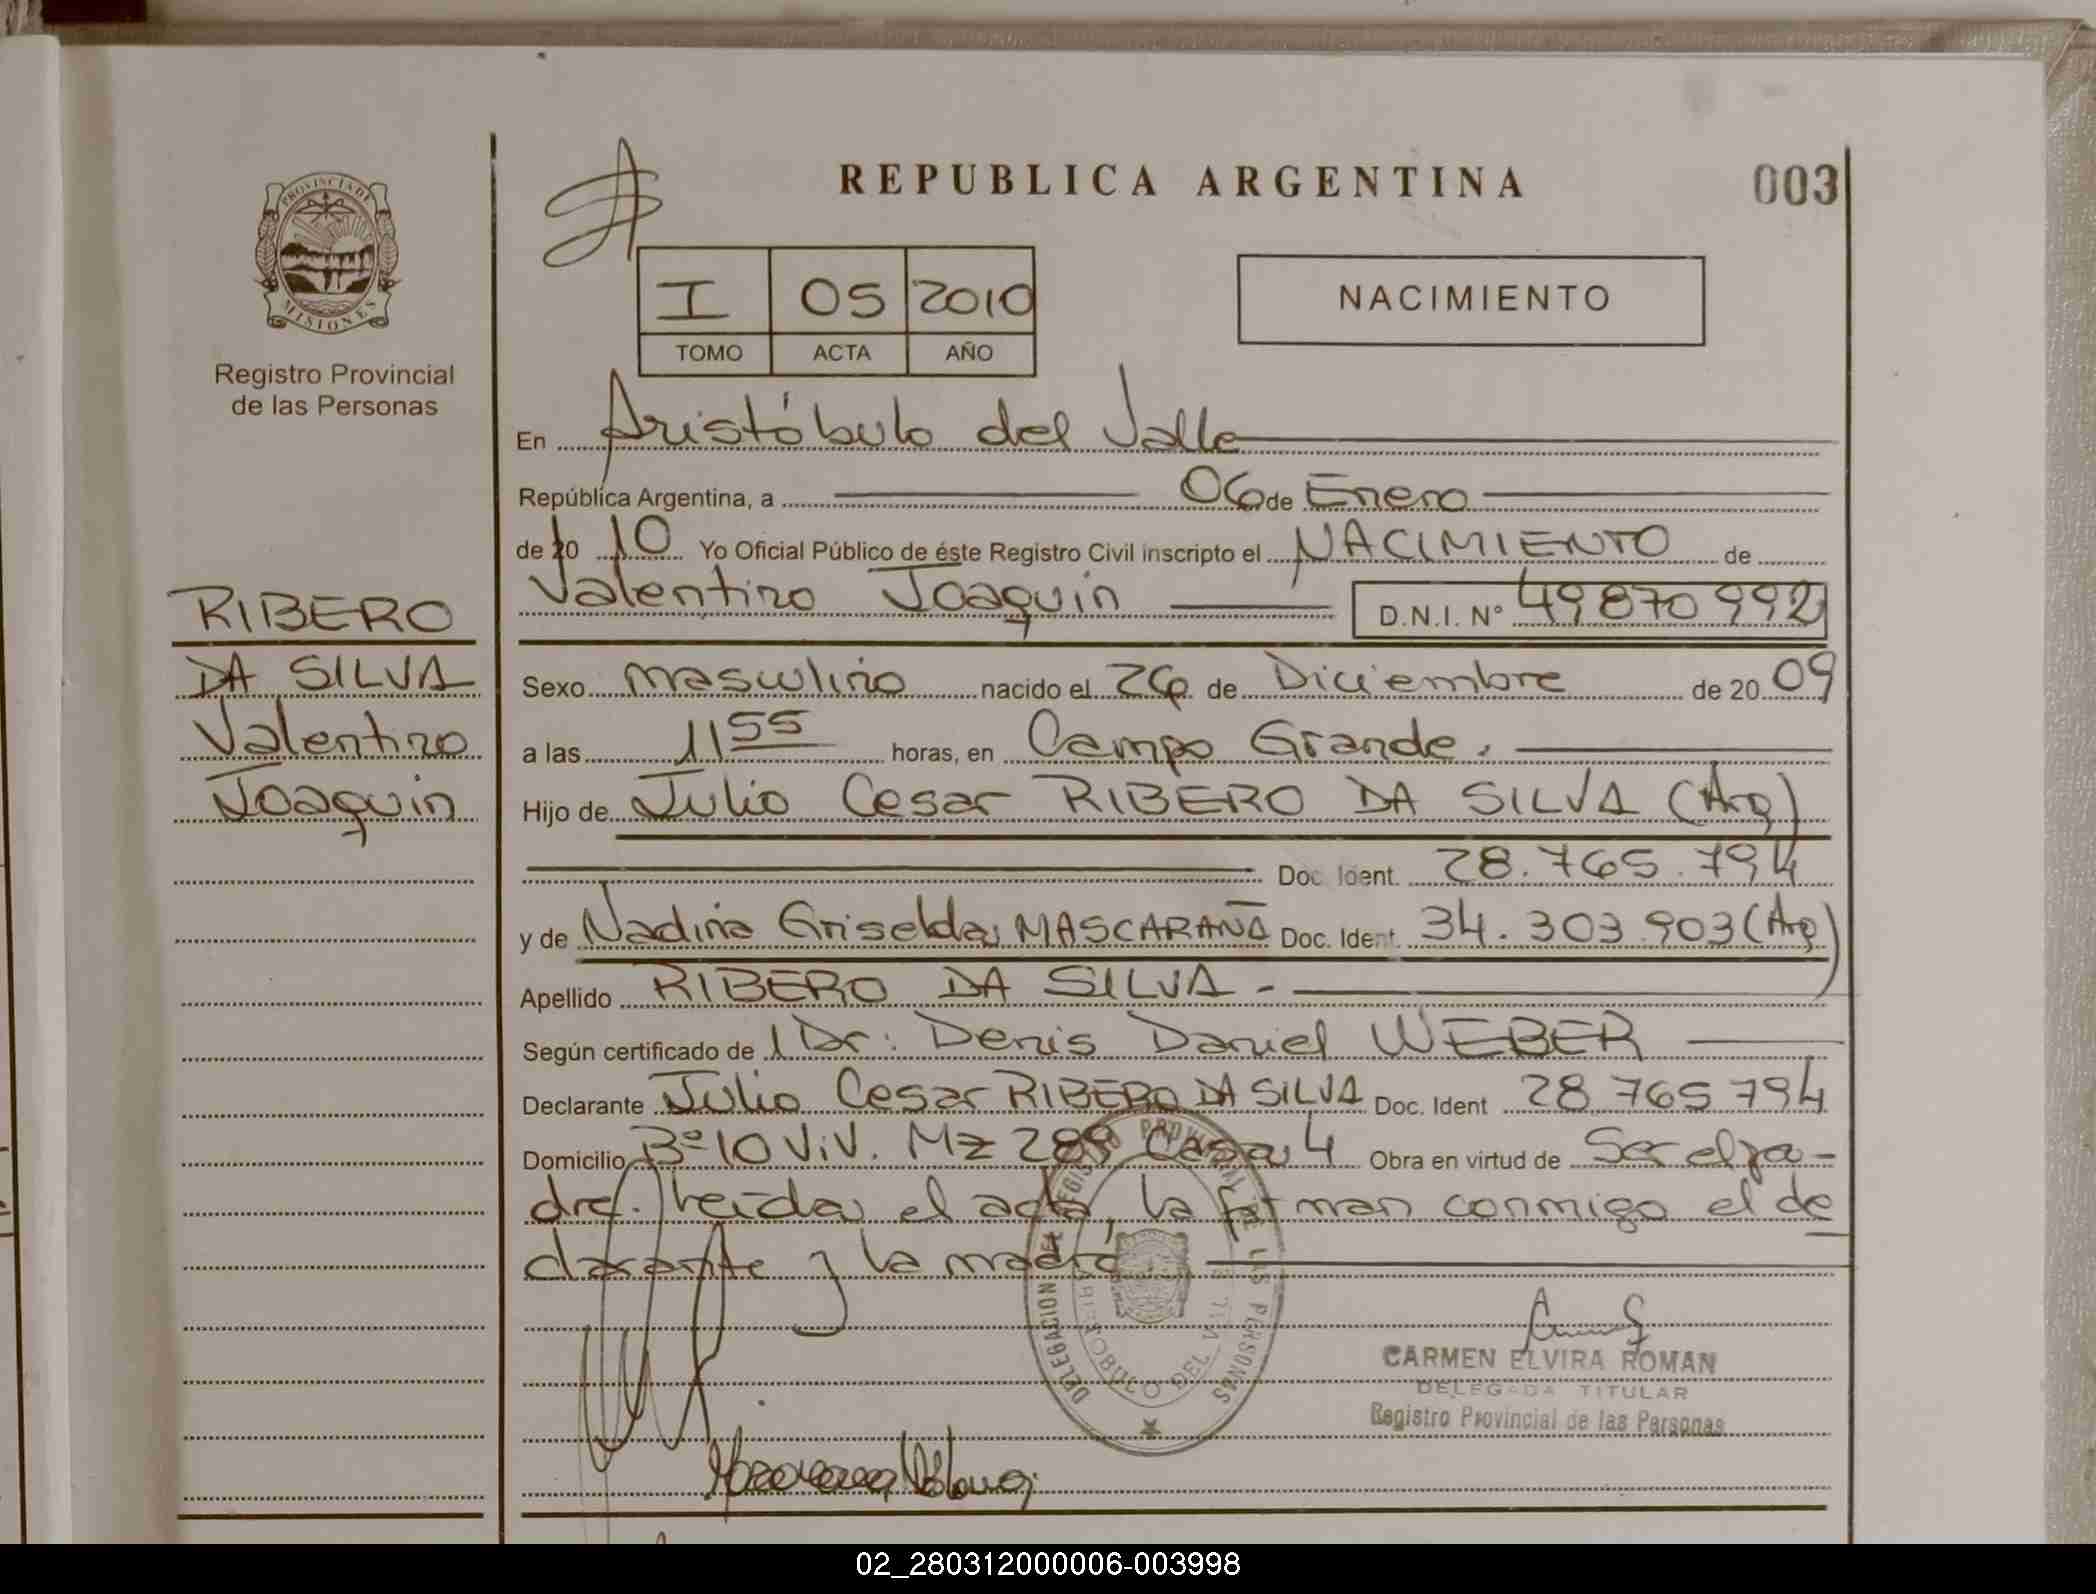 REPUBLICA ARGENTINA
003
PROVINCIA DE
MISIONES
Registro Provincial
de las Personas
I 05 2010
TOMO ACTA AÑO
NACIMIENTO
RIBERO
DA SILVA
Valentino
Joaquin
En Aristóbulo del Valle
República Argentina, a 06 de Enero
de 20 10 Yo Oficial Público de éste Registro Civil inscripto el NACIMIENTO de
Valentino Joaquin D.N.I. N° 49870992
Sexo masculino nacido el 26 de Diciembre de 20 09
a las 11 55 horas, en Campo Grande.
Hijo de Julio Cesar RIBERO DA SILVA (Arg)
Doc. Ident. 28.765.794
y de Nadina Griselda MASCARAÑA Doc. Ident. 34.303.903 (Arg)
Apellido RIBERO DA SILVA -
Según certificado de Dr: Denis Daniel WEBER
Declarante Julio Cesar RIBERO DA SILVA Doc. Ident 28 765 794
Domicilio Bº 10 ViV. Mz 289 Casa 4 Obra en virtud de Ser el pa-
dre. Leida el acta, la firman conmigo el de
clarante y la madre
DELEGACION DEL REGISTRO PROVINCIAL DE LAS PERSONAS
ARISTOBULO DEL VALLE
CARMEN ELVIRA ROMAN
DELEGADA TITULAR
Registro Provincial de las Personas
02_280312000006-003998